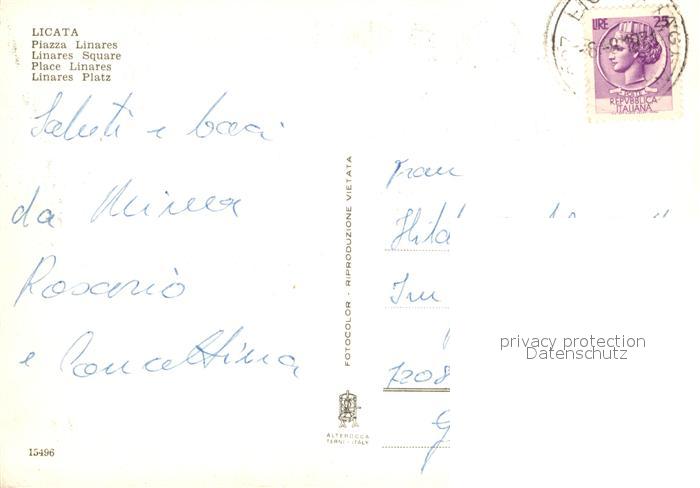 LICATA
Piazza Linares
Linares Square
Place Linares
Linares Platz
Saluti e baci
da Mirella
Rosario
e Concettina
15496
FOTOCOLOR - RIPRODUZIONE VIETATA
ALTEROCCA
TERNI - ITALY
LIRE 25
POSTE
REPVBBLICA
ITALIANA
Frau
Im
7208
privacy protection
Datenschutz